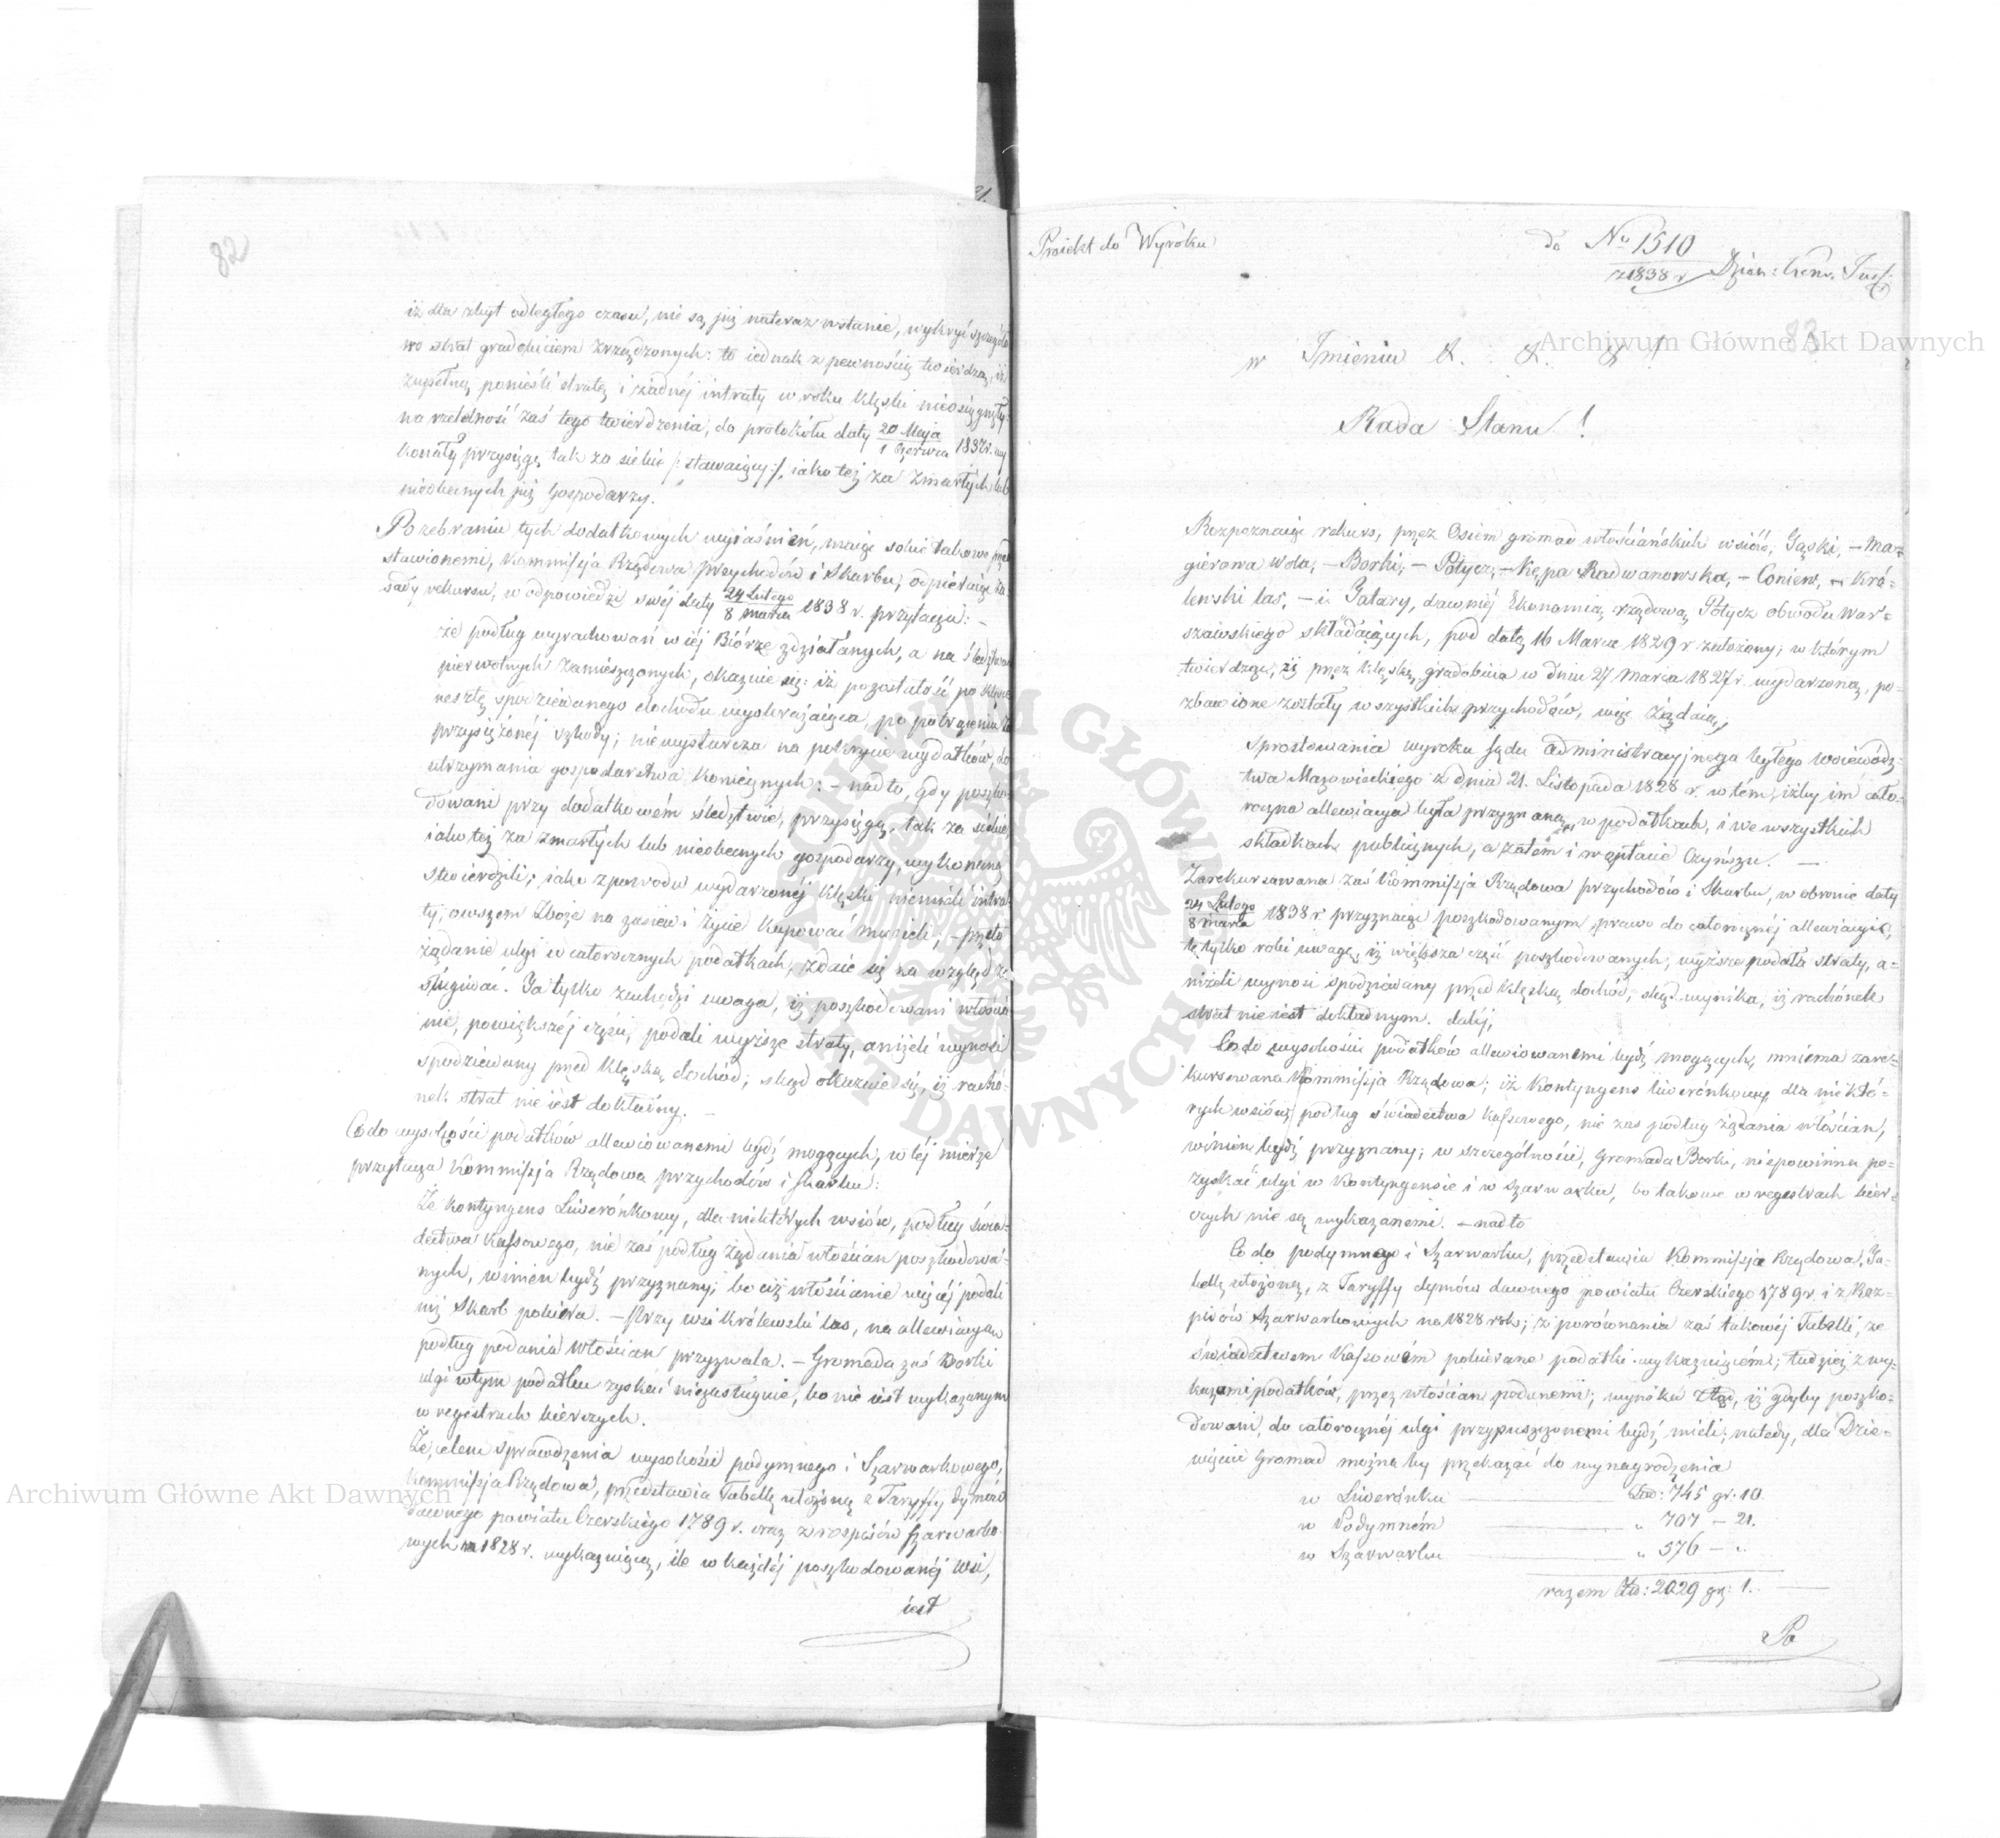 82
iż dla zbyt odległego czasu, nie są już na teraz wstanie, wykryć szczegóło
wo strat gradobiciem zrządzonych: to iednak z pewnością twierdzą, iż
zupełną ponieśli stratę i żadnéj intraty w roku klęski nieosiągnęły
na rzetelność zaś tego twierdzenia, do protokółu daty 20 Maja / 1 Czerwca 1837 r. wy
konały przysięgę tak za siebie /: stawaiący :/, iako też za zmarłych lub
nieobecnych już Gospodarzy.
Po zebraniu tych dodatkowych wyiaśnień, maiąc sobie takowe przed
stawionemi, Kommissja Rządowa Przychodów i Skarbu, odpieraiąc za-
sady rekursu, w odpowiedzi swéj daty 24 Lutego / 8 Marca 1838 r. przytacza: –
że podług wyrachowań w iéj Biórze zdziałanych, a na śledztwach
pierwotnych zamieszczonych, okazuie się: iż pozostałość po klęsce
resztę spodziewanego dochodu wyobrażaiąca, po potrąceniu za
przysiężonéj szkody; niewystarcza na pokrycie wydatków, do
utrzymania gospodarstwa koniecznych: – nadto, gdy poszko-
dowani przy dodatkowém śledztwie, przysięgą, tak za siebie
iako też za zmarłych lub nieobecnych gospodarzy, wykonaną
stwierdzili; iako z powodu wydarzonéj klęski niemieli intra-
ty, owszem zboże na zasiew i życie kupować musieli; – przeto
żądanie ulgi w całorocznych podatkach, zdaie się na wzgląd za
sługiwać. Ta tylko zachodzi uwaga, iż poszkodowani włościa
nie, powiększéj części, podali wyższe straty, aniżeli wynosi
spodziewany przed klęską dochód; skąd okazuie się, iż rachu-
nek strat nie iest dokładny. –
Co do wysokości podatków allewiowanemi bydź mogących, w téj mierze
przytacza Kommissja Rządowa przychodów i Skarbu:
Że kontyngens Liwerónkowy, dla niektórych wsiów, podług świa-
dectwa Kassowego, nie zaś podług żądania włościan poszkodowa-
nych, winien bydź przyznany; bo ciż włościanie więcéj podali
niż Skarb pobiera. – Przy wsi Królewski las, na allewiacyą
podług podania włościan przyzwala. – Gromada zaś Borki
ulgi w tym podatku zyskać niezasługuie, bo nie iest wykazanym
w regestrach bierczych.
Że, celem sprawdzenia wysokości podymnego i Szarwarkowego,
Kommissja Rządowa, przedstawia Tabellę ułożoną z Taryffy dymów
dawnego powiatu Czerskiego 1789 r. oraz z rospisów szarwarko-
wych na 1828 r. wykazuiącą, ile w każdéj poszkodowanéj wsi,
iest
Proiekt do Wyroku
do No 1510
z 1838 r
w Imieniu & . & . & !
Rada Stanu !
Rozpoznaiąc rekurs, przez Osiem gromad włościańskich wsiów, Gąski, – Ma-
gierowa Wola, – Borki, – Potycz, – Kępa Radwanowska, – Coniew, – Kró-
lewski las, – i Tatary, dawniéj Ekonomią rządową Potycz obwodu War-
szawskiego składaiących, pod datą 16 Marca 1829 r założony; w którym
twierdząc, iż przez klęskę gradobicia w dniu 27 Marca 1827 r. wydarzoną, po-
zbawione zostały wszystkich przychodów, więc żądaią,
Sprostowania wyroku Sądu administracyjnego byłego Woiewódz-
twa Mazowieckiego z dnia 21. Listopada 1828 r. w tém, iżby im cało-
roczna allewiacya była przyznaną, w podatkach, i we wszystkich
składkach publicznych, a zatém i w opłacie Czynszu. –
Zarekursowana zaś Kommissja Rządowa przychodów i Skarbu, w obronie daty
24 Lutego / 8 Marca 1838 r. przyznaiąc poszkodowanym prawo do całorocznéj allewiacyi,
tę tylko robi uwagę, iż większa część poszkodowanych, wyższe podała straty, a-
niżeli wynosi spodziewany przed klęską dochód, skąd wynika, iż rachónek
strat nie iest dokładnym. daléj,
Co do wysokości podatków allewiowanemi bydź mogących, mniema zare-
kursowana Kommissja Rządowa; iż kontyngens liwerónkowy dla niektó-
rych wsiów, podług świadectwa Kassowego, nie zas podług żądania włościan,
winien bydź przyznany; w szczególności, Gromada Borki, niepowinna po-
zyskać ulgi w kontyngensie i w szarwarku, bo takowe w regestrach bier-
czych nie są wykazanemi. – nadto
Co do podymnego i Szarwarku, przedstawia Kommissja Rządowa, Ta-
bellę ułożoną, z Taryffy dymów dawnego powiatu Czerskiego 1789 r. i z Roz-
pisów Szarwarkowych na 1828 rok; z porównania zaś takowéj Tabelli, ze
świadectwem Kassowém pobierane podatki wykazuiącém; tudzież z wy-
kazami podatków, przez włościan podanemi; wynika ztąd, iż gdyby poszko-
dowani, do całorocznéj ulgi przypuszczonemi bydź mieli; natedy, dla Dzie-
więciu Gromad możnaby przekazać do wynagrodzenia
w Liwerónku — Złp: 745 gr. 10.
w Podymném — „ 707 – 21.
w Szarwarku — „ 576 – „.
razem Złp: 2029 gr: 1. —
Po
Archiwum Główne Akt Dawnych
Archiwum Główne Akt Dawnych
ARCHIWUM GŁÓWNE AKT DAWNYCH